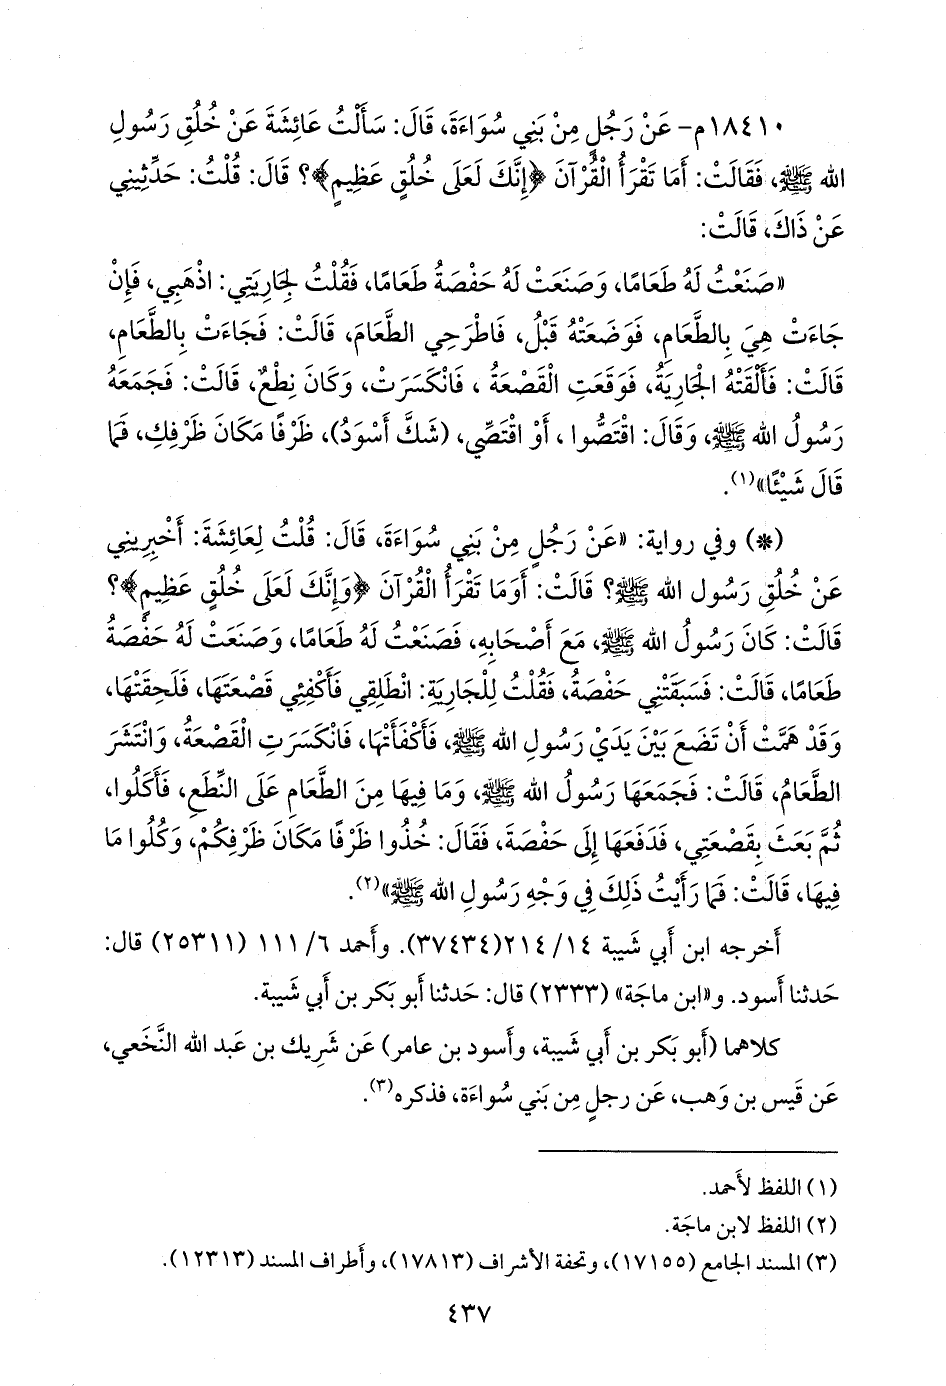 ١٨٤١٠م- عَنْ رَجُلٍ مِنْ بَنِي سُوَاءَةَ، قَالَ: سَأَلْتُ عَائِشَةَ عَنْ خُلُقِ رَسُولِ
الله ﷺ، فَقَالَتْ: أَمَا تَقْرَأُ الْقُرْآنَ ﴿إِنَّكَ لَعَلَى خُلُقٍ عَظِيمٍ﴾؟ قَالَ: قُلْتُ: حَدِّثِينِي
عَنْ ذَاكَ، قَالَتْ:
«صَنَعْتُ لَهُ طَعَامًا، وَصَنَعَتْ لَهُ حَفْصَةُ طَعَامًا، فَقُلْتُ لِجَارِيَتِي: اذْهَبِي، فَإِنْ
جَاءَتْ هِيَ بِالطَّعَامِ، فَوَضَعَتْهُ قَبْلُ، فَاطْرَحِي الطَّعَامَ، قَالَتْ: فَجَاءَتْ بِالطَّعَامِ،
قَالَتْ: فَأَلْقَتْهُ الْجَارِيَةُ، فَوَقَعَتِ الْقَصْعَةُ ، فَانْكَسَرَتْ، وَكَانَ نِطْعٌ، قَالَتْ: فَجَمَعَهُ
رَسُولُ الله ﷺ، وَقَالَ: اقْتَصُّوا ، أَوْ اقْتَصِّي، (شَكَّ أَسْوَدُ)، ظَرْفًا مَكَانَ ظَرْفِكِ، فَمَا
قَالَ شَيْئًا»(١).
(*) وفي رواية: «عَنْ رَجُلٍ مِنْ بَنِي سُوَاءَةَ، قَالَ: قُلْتُ لِعَائِشَةَ: أَخْبِرِينِي
عَنْ خُلُقِ رَسُولِ الله ﷺ؟ قَالَتْ: أَوَمَا تَقْرَأُ الْقُرْآنَ ﴿وَإِنَّكَ لَعَلَى خُلُقٍ عَظِيمٍ﴾؟
قَالَتْ: كَانَ رَسُولُ الله ﷺ، مَعَ أَصْحَابِهِ، فَصَنَعْتُ لَهُ طَعَامًا، وَصَنَعَتْ لَهُ حَفْصَةُ
طَعَامًا، قَالَتْ: فَسَبَقَتْنِي حَفْصَةُ، فَقُلْتُ لِلْجَارِيَةِ: انْطَلِقِي فَأَكْفِئِي قَصْعَتَهَا، فَلَحِقَتْهَا،
وَقَدْ هَمَّتْ أَنْ تَضَعَ بَيْنَ يَدَيْ رَسُولِ الله ﷺ، فَأَكْفَأَتْهَا، فَانْكَسَرَتِ الْقَصْعَةُ، وَانْتَشَرَ
الطَّعَامُ، قَالَتْ: فَجَمَعَهَا رَسُولُ الله ﷺ، وَمَا فِيهَا مِنَ الطَّعَامِ عَلَى النِّطَعِ، فَأَكَلُوا،
ثُمَّ بَعَثَ بِقَصْعَتِي، فَدَفَعَهَا إِلَى حَفْصَةَ، فَقَالَ: خُذُوا ظَرْفًا مَكَانَ ظَرْفِكُمْ، وَكُلُوا مَا
فِيهَا، قَالَتْ: فَمَا رَأَيْتُ ذَلِكَ فِي وَجْهِ رَسُولِ الله ﷺ»(٢).
أَخرجه ابن أَبي شيبة ١٤/ ٢١٤(٣٧٤٣٤). وأَحمد ٦/ ١١١ (٢٥٣١١) قال:
حَدثنا أَسود. و«ابن ماجَة» (٢٣٣٣) قال: حَدثنا أَبو بَكر بن أَبي شَيبة.
كلاهما (أَبو بَكر بن أَبي شَيبة، وأَسود بن عامر) عَن شَرِيك بن عَبد الله النَّخَعي،
عَن قَيس بن وَهب، عَن رجلٍ مِن بَني سُواءَة، فذكره(٣).
(١) اللفظ لأَحمد.
(٢) اللفظ لابن ماجَة.
(٣) المسند الجامع (١٧١٥٥)، وتحفة الأشراف (١٧٨١٣)، وأَطراف المسند (١٢٣١٣).
٤٣٧